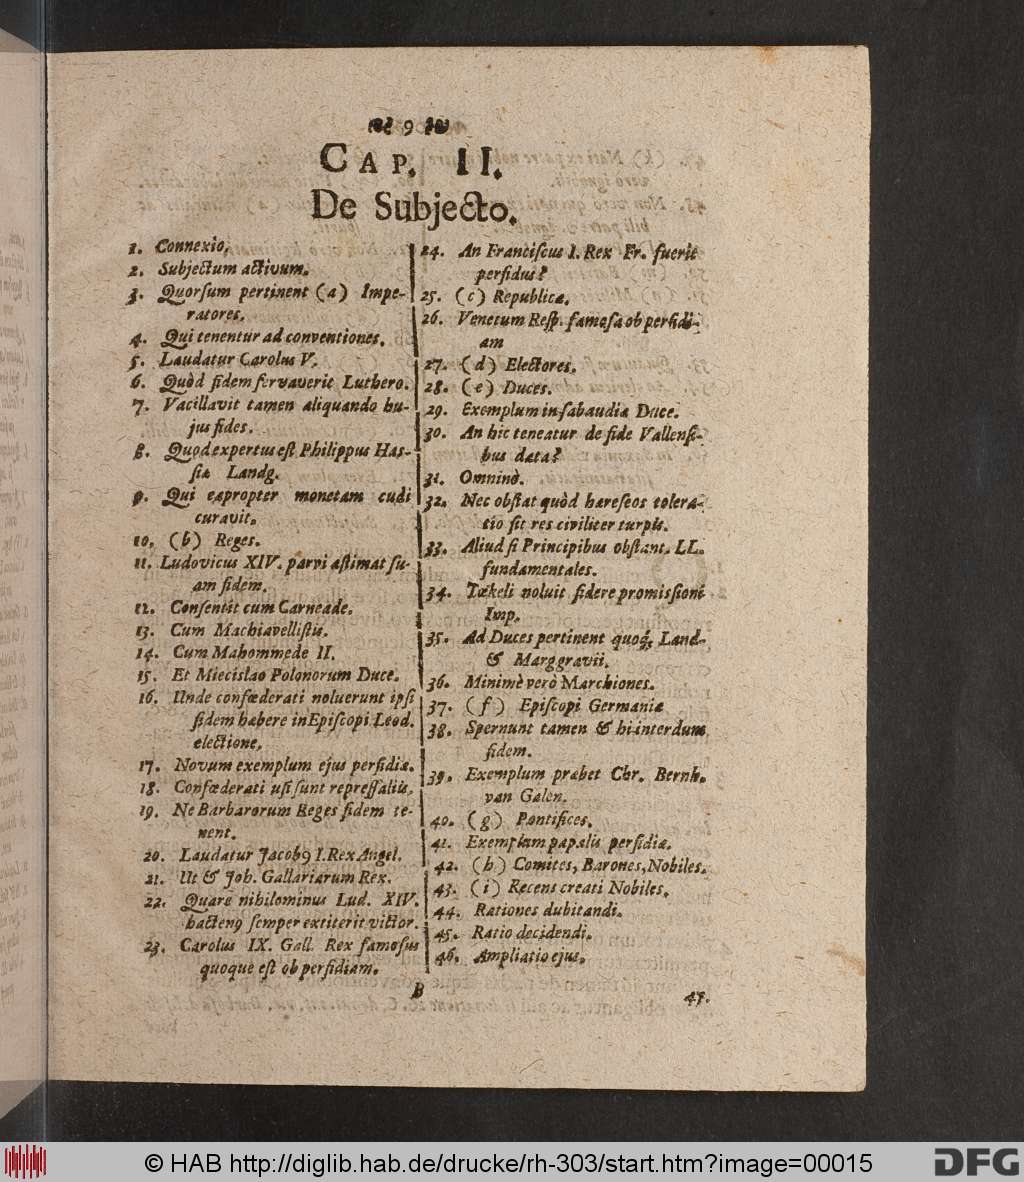 9
CAP. II.
De Subjecto.
1. Connexio,
2. Subjectum activum.
3. Quorsum pertinent (a) Impe-
ratores.
4. Qui tenentur ad conventiones.
5. Laudatur Carolus V.
6. Quòd fidem servaverit Luthero.
7. Vacillavit tamen aliquando hu-
jus fides.
8. Quod expertus est Philippus Has-
siæ Landg.
9. Qui eapropter monetam cudi
curavit.
10. (b) Reges.
11. Ludovicus XIV. parvi æstimat su-
am fidem.
12. Consentit cum Carneade.
13. Cum Machiavellistis.
14. Cum Mahommede II.
15. Et Miecislao Polonorum Duce.
16. Unde confœderati noluerunt ipsi
fidem habere in Episcopi Leod.
electione.
17. Novum exemplum ejus perfidiæ.
18. Confœderati usi sunt repressaliis.
19. Ne Barbarorum Reges fidem te-
nent.
20. Laudatur Jacobꝰ I. Rex Angel.
21. Ut & Joh. Galliarum Rex.
22. Quare nihilominus Lud. XIV.
hactenꝰ semper extiterit victor.
23. Carolus IX. Gall. Rex famosus
quoque est ob perfidiam.
24. An Franciscus I. Rex Fr. fuerit
perfidus?
25. (c) Republicæ.
26. Venetum Resp. famosa ob perfidi-
am
27. (d) Electores.
28. (e) Duces.
29. Exemplum in sabaudiæ Duce.
30. An hic teneatur de fide Vallensi-
bus data?
31. Omninò.
32. Nec obstat quòd hæreseos tolera-
tio sit res civiliter turpis.
33. Aliud si Principibus obstant. LL.
fundamentales.
34. Tœkeli noluit fidere promissioni
Imp.
35. Ad Duces pertinent quoq; Land-
& Marggravii.
36. Minimè verò Marchiones.
37. (f) Episcopi Germaniæ
38. Spernunt tamen & hi interdum
fidem.
39. Exemplum præbet Chr. Bernh.
van Galen.
40. (g) Pontifices.
41. Exemplum papalis perfidiæ.
42. (h) Comites, Barones, Nobiles.
43. (i) Recens creati Nobiles.
44. Rationes dubitandi.
45. Ratio decidendi.
46. Ampliatio ejus.
B
47.
© HAB http://diglib.hab.de/drucke/rh-303/start.htm?image=00015
DFG